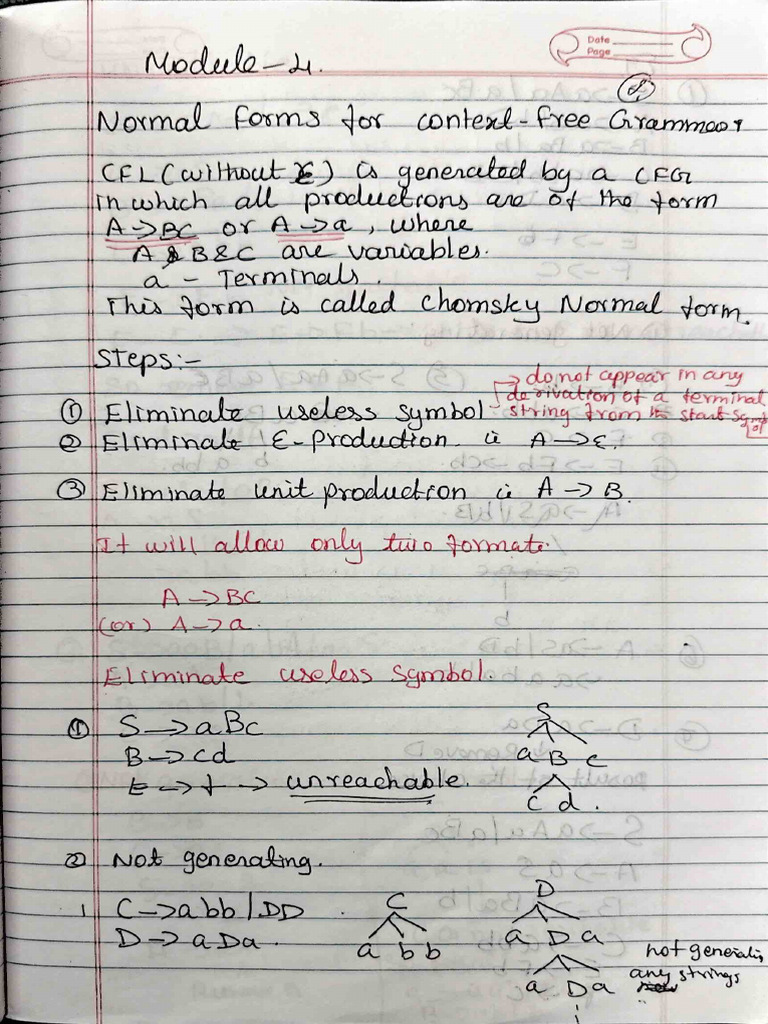 Date
Page
Module-4.
Normal Forms for context-free Grammer
CFL (without ε) is generated by a CFG
in which all productions are of the form
A → BC or A → a, where
A & B & C are variables.
a - Terminals.
This form is called Chomsky Normal form.
Steps:-
① Eliminate useless symbol → do not appear in any
derivation of a terminal
string from the start symbol
② Eliminate ε-Production ie A → ε.
③ Eliminate unit production ie A → B.
It will allow only two formate
A → BC
(or) A → a.
Eliminate useless Symbol.
① S → aBc
B → cd
E → f → unreachable.
S
a B c
c d.
② Not generating.
C → abb | DD
D → aDa.
C
a b b
D
a D a
a D a
any strings